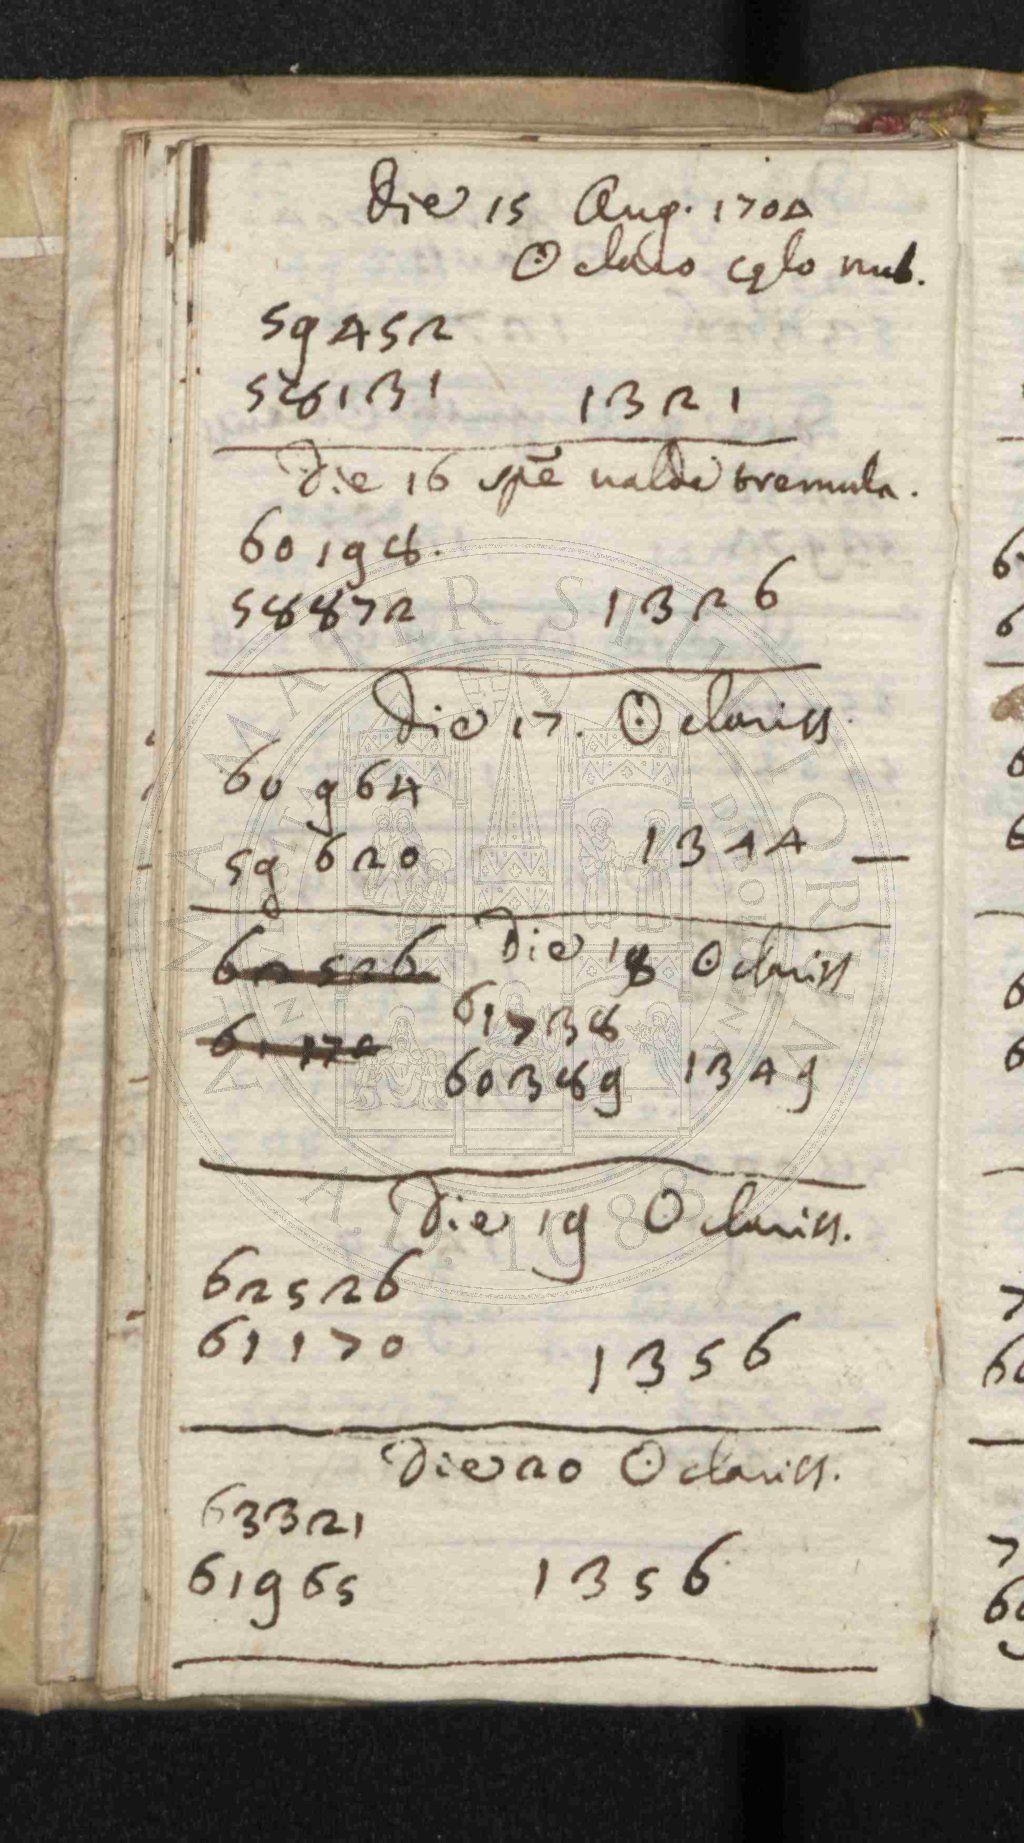 Die 15 Aug. 1704
☉ claro cęlo nub.
59452
58131 1321
Die 16 spē ualde tremula.
60198.
58872 1326
Die 17. ☉ clariss.
60964
59620 1344 —
62526 Die 18 ☉ clariss
61170 61738
60389 1349
Die 19 ☉ clariss.
62526
61170 1356
Die 20 ☉ clariss.
63321
61965 1356
ALMA MATER STUDIORUM
A.D. 1088